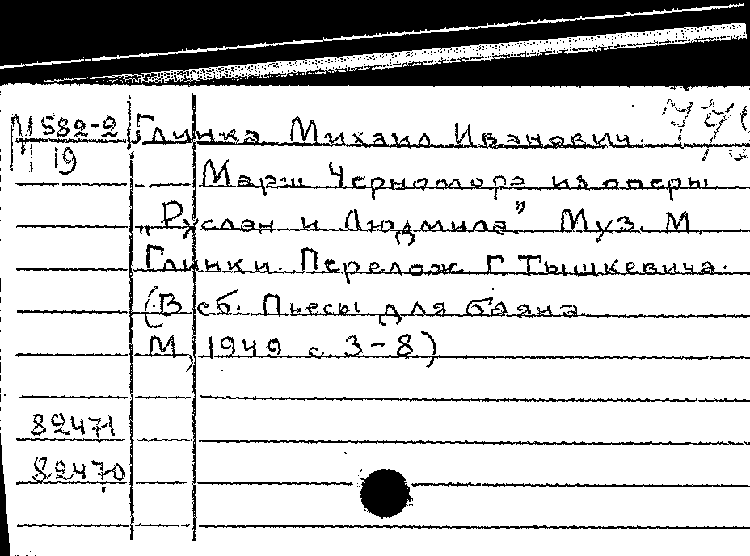 М 582-2 Глинка Михаил Иванович.
М 19
Марш Черномора из оперы
„Руслан и Людмила" Муз. М.
Глинки. Перелож. Г. Тышкевича.
(В сб. Пьесы для баяна
М, 1949 с. 3-8)
82471
82470